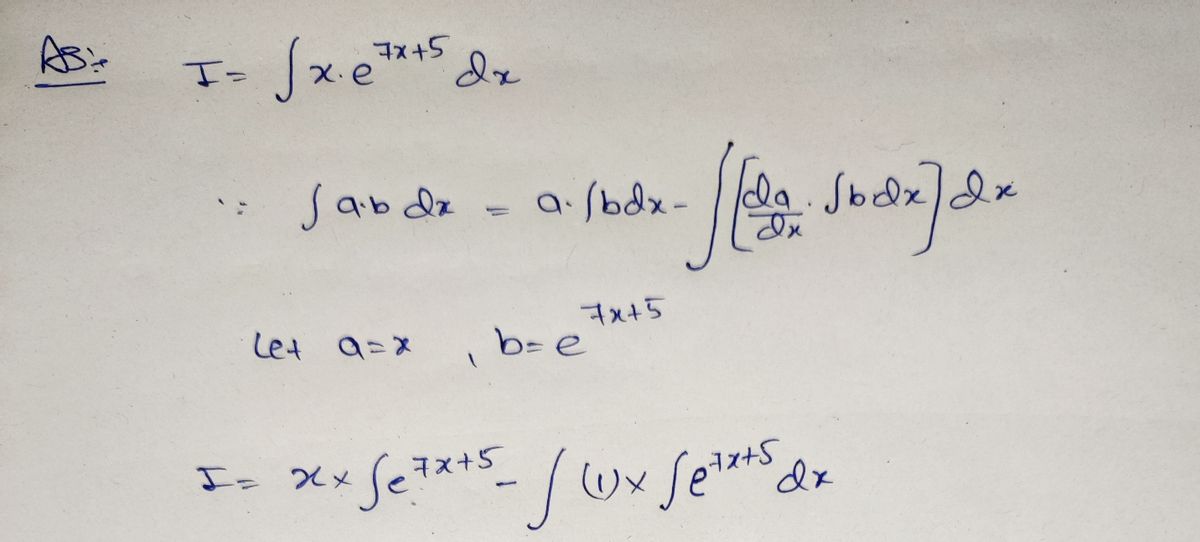 AB:-
I = ∫ x.e^{7x+5} dx
∵ ∫ a.b dx = a.∫bdx - ∫[da/dx . ∫bdx] dx
Let a=x , b=e^{7x+5}
I = x × ∫e^{7x+5} - ∫ (1) × ∫e^{7x+5} dx